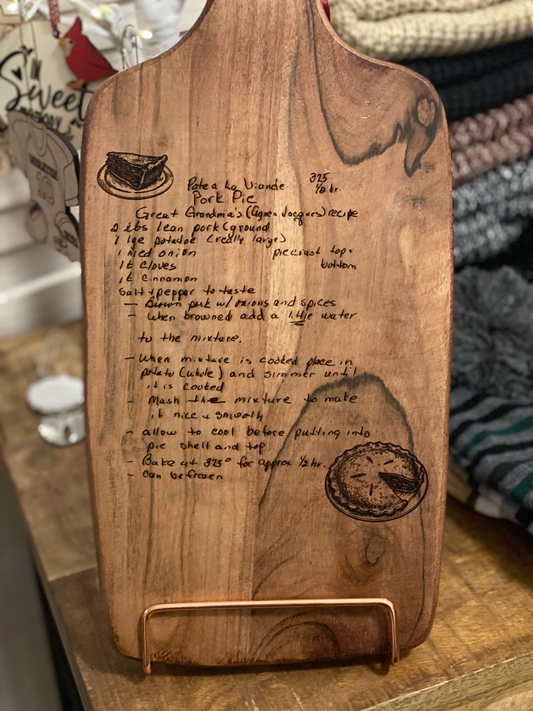 Sweet
Pate a La Viande 325
Pork Pie ½ hr.
Great Grandma's (Agnes Jacques) recipe
2 lbs lean pork (ground
1 lge potatoe (really large)
1 med onion piecrust top +
1t cloves bottom
1t cinnamon
Salt + pepper to taste
- Brown pork w/ onions and spices
- when browned add a little water
to the mixture.
- When mixture is cooked place in
potato (whole) and simmer until
it is cooked
- Mash the mixture to make
it nice & smooth
- allow to cool before putting into
pie shell and top
- Bake at 325° for approx. ½ hr.
- Can be frozen